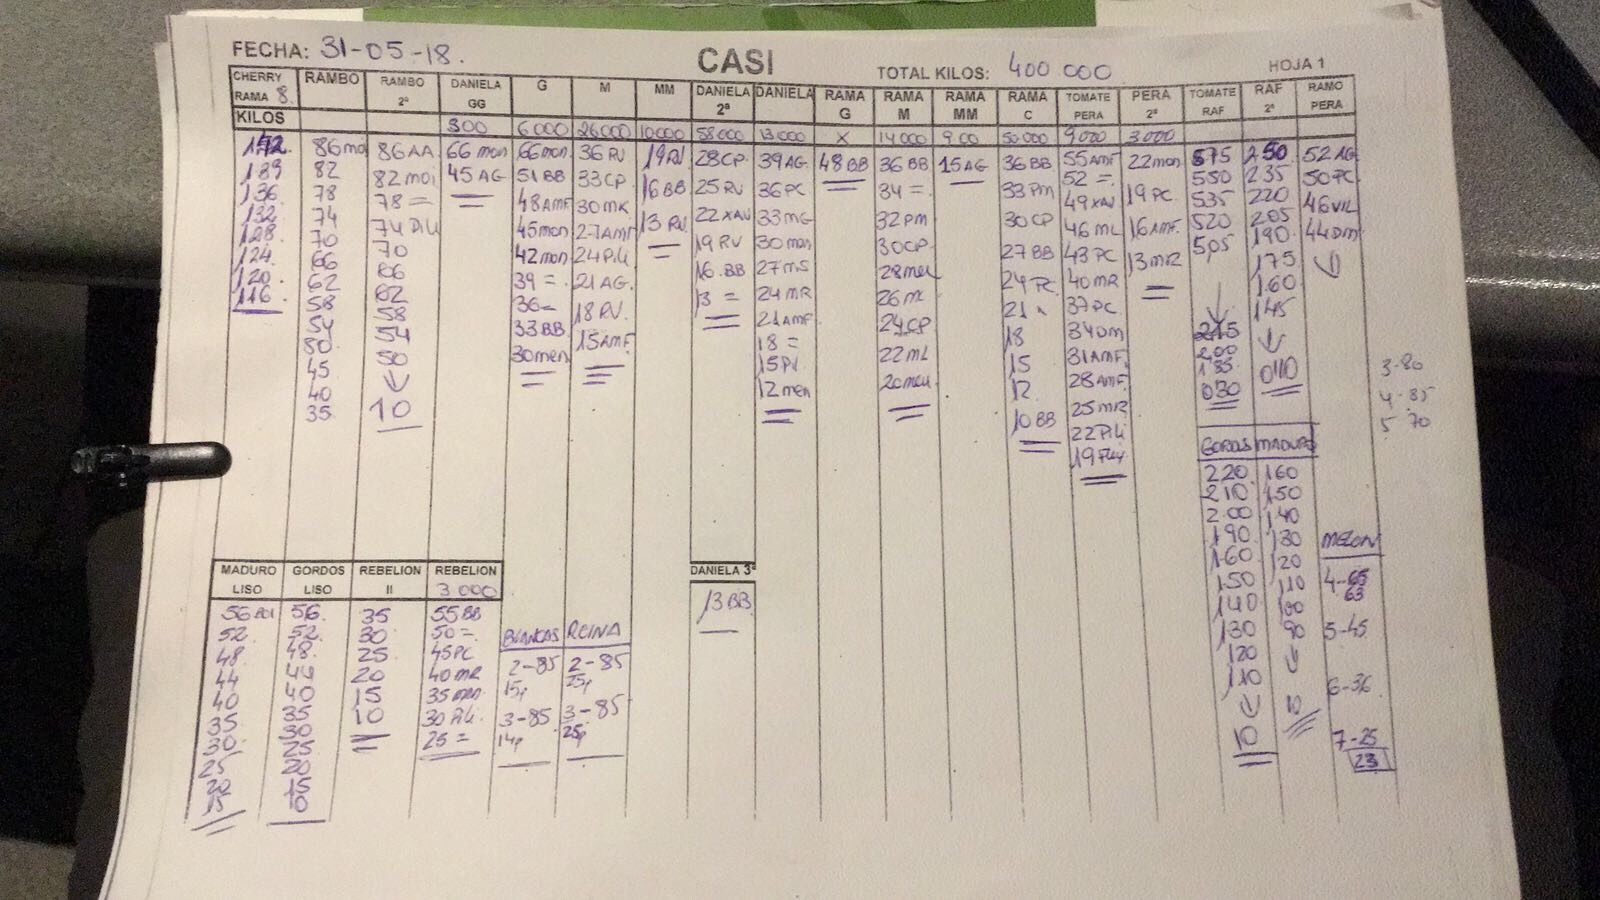 FECHA: 31-05-18. CASI TOTAL KILOS: 400 000 HOJA 1
CHERRY RAMA 8. RAMBO RAMBO 2ª DANIELA GG G M MM DANIELA 2ª DANIELA RAMA G RAMA M RAMA MM RAMA C TOMATE PERA PERA 2ª TOMATE RAF RAF 2ª RAMO PERA
KILOS 300 6000 26000 10000 58000 13000 X 14000 900 50000 9000 3000
86 86AA 66 men 66 men 36 RV 19 RV 28 CP. 39 AG. 48 BB 36 BB 15 AG 36 BB 55 AMF 22 men 575 250 52 AG
82 82 45 AG 51 BB 33 CP 16 BB 25 RV 36 PC 34 = 33 PM 52 = 19 PC. 550 235 50 PC
136. 78 78 = 48 AMF 30 MR 13 RV 22 XAV 33 MG 32 PM 30 CP 49 XAV 16 AMF. 535 220 46 VIL
132 74 74 Pili 45 men 27 AMF 19 RV 30 men 30 CP. 27 BB 46 ML 13 MR 520 205 44 DM
128. 70 70 42 men 24 Pili 16. BB 27 MS 24 PC 43 PC 505 190
124. 66 66 39 = 21 AG. 13 = 24 MR 21 40 MR 175
120. 62 62 36 = 18 RV. 21 AMF 24 CP 18 37 PC. 160
116. 58 58 33 BB 15 AMF. 18 = 22 ML 15 34 DM 145
54 54 30 men 15 PV 12 31 AMF.
50 50 12 men 10 BB 28 AMF. 200
45 10 25 MR 185 010
40 22 Pili 030
35
3-80
4-85
5 70
GORDOS MADURO
220 160
210 150
200 140
190 130
160 120
150 110
140 100
130 90
120
110
10 10
MELON
4-65
63
5-45
6-36
7-25
23
MADURO LISO GORDOS LISO REBELION II REBELION 3.000 DANIELA 3ª
56 56 35 55 BB 13 BB
52 52 30 50 =
48 48 25 45 PC
44 44 20 40 MR
40 40 15 35 men
35 35 10 30 Pili
30 30 25 =
25 25
20 20
15 15
10
BLANCAS REINA
2-85 2-85
15p 25p
3-85 3-85
14p 25p